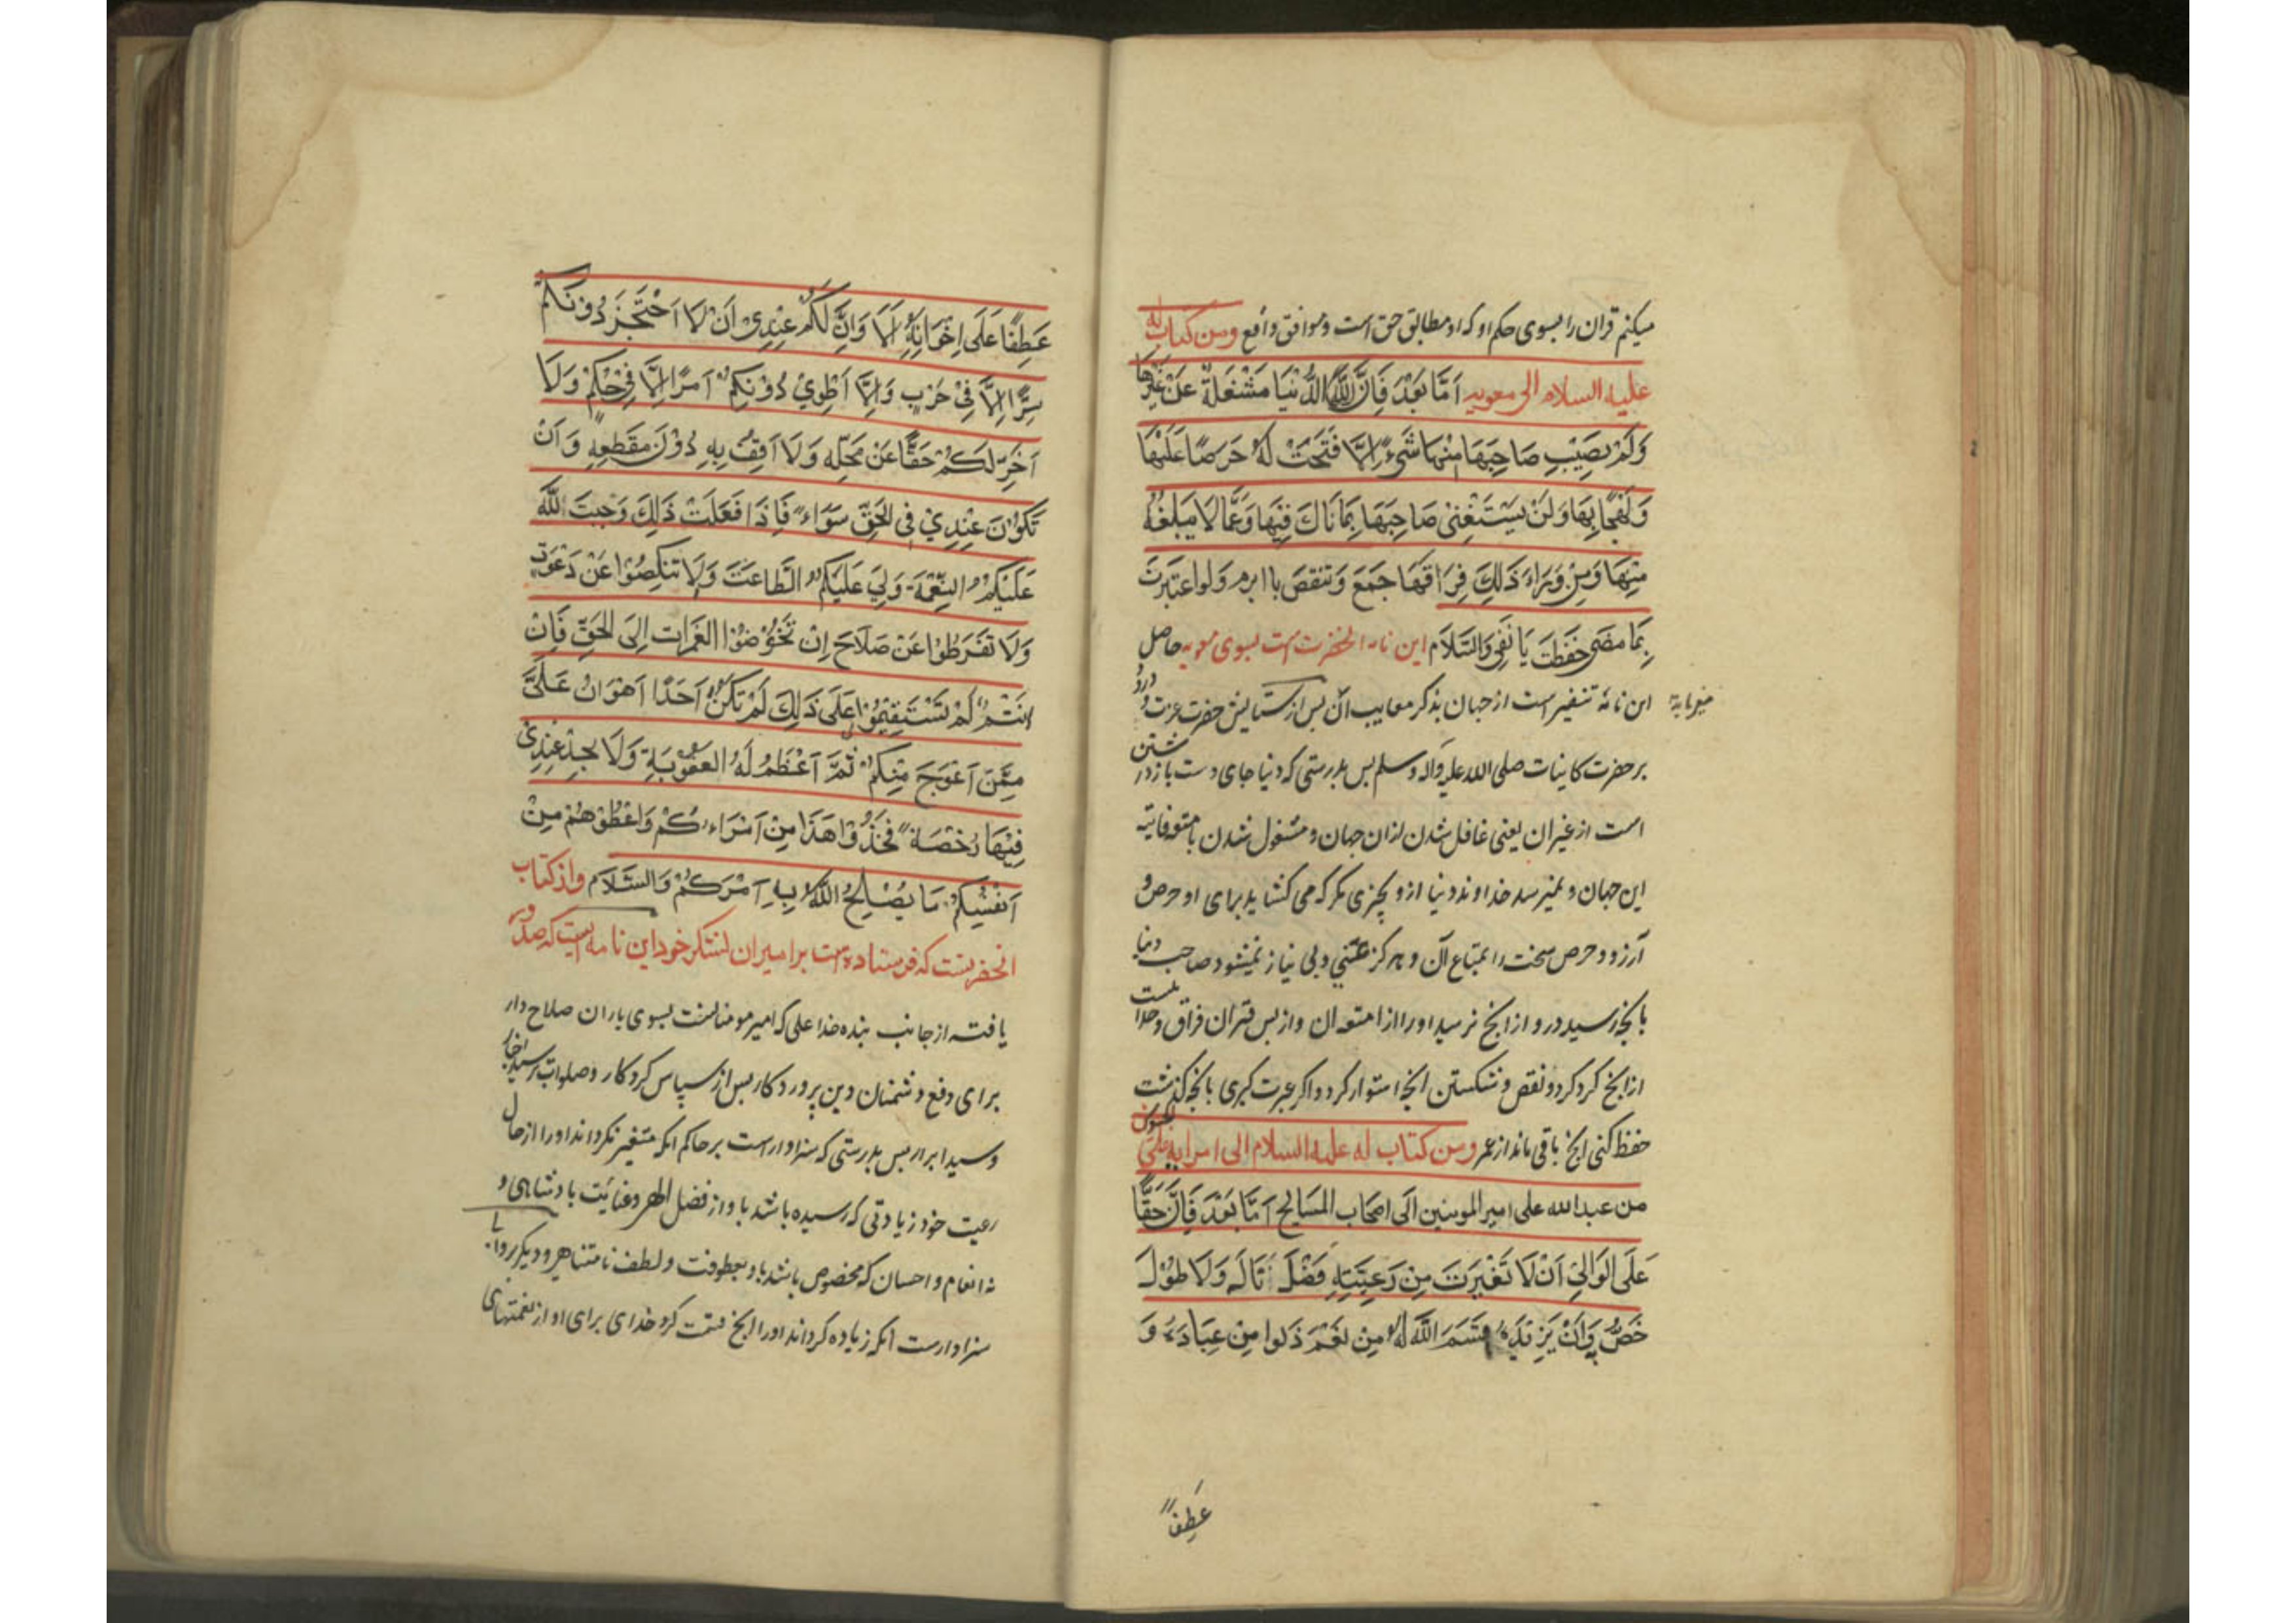 میکنم قران را بسوی حکم او که او مطابق حق است و موافق واقع ومن کتاب له
علیه السلام الی معویه اَمَّا بَعْدَ فَاِنَّ الدُّنیَا مَشْغَلَةٌ عَنْ غَیْرِهَا
وَلَمْ یصِیْبِ صَاحِبَهَا مِنْهَا شَیْءً اِلَّا فَتَحَتْ لَهُ حَرصًا عَلَیْهَا
وَلَهَجًا بِهَا وَلَنْ یَسْتَغْنِیَ صَاحِبَهَا بِمَا نَاكَ فِیَهَا وَعَمَّا لَا یَبلغهُ
مِنْهَا وَمِنْ وَرَاءَ ذَلِكَ فِرَاقهَا جَمَعَ وَتنقصَ باابرم ولواعتبَرتَ
بِمَا مَضَی حَفَظتَ یَا بَقِی وَالسَّلاَم این نامه انحضرت است بسوی معویه حاصل
این نامه تنفیر است از جهان بذکر معایب آن پس از ستایش حضرت عزت و درود
بر حضرت کاینات صلی الله علیه وآله وسلم پس بدرستی که دنیا جای دست بازداشتن
است از غیر ان یعنی غافل شدن از ان جهان و مشغول شدن بامتعه فانیه
این جهان و نمیرسد خداوند دنیا ازو بچیزی مکر که می کشاید برای او حرص و
آرزو و حرص سخت را بمتاع آن و هرکز غنی و بی نیاز نمیشود صاحب دنیا
بانچه رسید درو و از انچه نرسید او را از امتعه ان و از پس قران فراق وجداییست
از انچه کرد کرد و نقص و شکستن انچه استوار کرد و اکر عبرت کیری بانچه کذشت
حفظ کنی انچ باقی ماند از عمر ومن کتاب له علیه السلام الی امرایه علی الجیوش
من عبدالله علی امیرالمومنین اِلَی اصحَاب المسَالِح اَمَّا بَعْدَ فَاِنَّ حَقًّا
عَلَی الوَالِیْ اَنْ لَا تَغْیَرَتَ مِنْ رَعِیَّتِهِ فَضْلَ نَالَه وَلَا طَوْل
خَصَّ وَاَنْ یَزِیدَهُ قسَمَ اللّٰه لَهُ مِن نعَمْ دَلوا مِنْ عِبَادَهُ وَ
عَطِفًا
عَطِفًا عَلَی اِخْوَانِهِ اَلَا وَاِنَّ لَکُمْ عِنْدِیْ اَنْ لَا اَحْتَجِزَ دُونَکُمْ
سِرًّا اِلَّا فِیْ حَرْبٍ وَلَا اَطْوِیْ دُوْنَکُمْ اَمْرًا اِلَّا فِی حُکْمٍ وَلَا
اَخِّرْ لَکُمْ حَقًّا عَنْ مَحَلِّهِ وَلَا اَقِفُ بِهِ دُوْنَ مَقْطَعِهِ وَاَنْ
تَکُوْنَ عِنْدِیْ فِی الحَقِّ سَوَاءً فَاِذَا فَعَلتْ ذَلِكَ وَجَبتَ اللّٰه
عَلَیْکُمْ النِّعْمَة وَلِیَ عَلَیْکُمْ الطَّاعَتَ وَلَا تَنْکِصُوْا عَنْ دَعْوَتٍ
وَلَا تَفْرَطُوْا عَنْ صَلَاحَ اِنْ تَخَوْضُوْا الغَمَرات اِلَی الحَقِّ فَاِنْ
اَنْتُمْ لَمْ تَسْتَقِیْمُوْا عَلَی ذَلِكَ لَمْ یَکُنْ اَحَدًا اَهْوَانُ عَلَیَّ
مِمَّنَ اَعْوَجَ مِنْکُمْ ثُمَّ اَعْظَمُ لَهُ العقوْبَةِ وَلَا یَجِدْ عِنْدِی
فِیْهَا رُخْصَةً فَخُذُوْا هَذَا مِنْ اَمَرَاءِکُمْ وَاعْطُوْهُمْ مِنْ
اَنْفُسِکُمْ مَا یُصْلِحُ اللّٰهُ بِهِ اَمْرَکُمْ وَالسَّلَام واز کتاب
انحضرتست که فرستاده است بر امیران لشکر خود این نامه ایست که صدور
یافته از جانب بنده خدا علی که امیرمومنانست بسوی یاران صلاح دار
برای دفع دشمنان دین پروردکار پس از سپاس کردکار و صلوات بر سید اخیار
و سید ابرار پس بدرستی که سزاوار است بر حاکم انکه متغیر نکرداند او را از حال
رعیت خود زیادتی که رسیده باشد باو از فضل الهی و عنایت پادشاهی و
نه انعام و احسان که مخصوص باشد باو بعطوفت و لطف نامتناهی و دیکر
سزاوارست انکه زیاده کرداند او را انچ قسمت کرد خدای برای او از نعمتهای